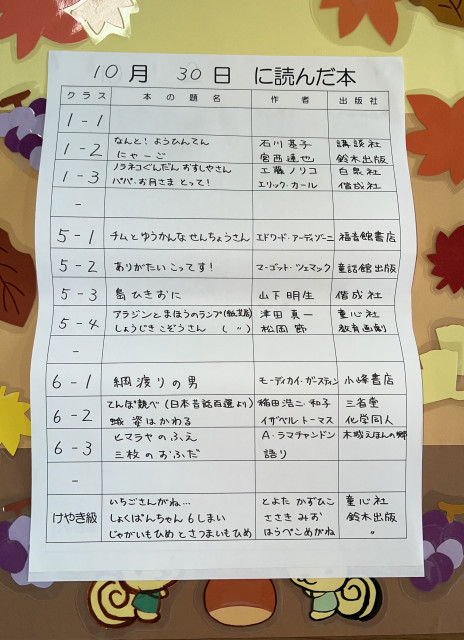 10月 30日 に読んだ本
クラス 本の題名 作者 出版社
1-1
1-2 なんと!ようひんてん 石川基子 講談社
にゃーご 宮西達也 鈴木出版
1-3 ノラネコぐんだん おすしやさん 工藤ノリコ 白泉社
パパ・お月さま とって! エリック・カール 偕成社
-
5-1 チムとゆうかんな せんちょうさん エドワード・アーディゾーニ 福音館書店
5-2 ありがたい こってす! マーゴット・ツェマック 童話館出版
5-3 島ひきおに 山下明生 偕成社
5-4 アラジンとまほうのランプ(紙芝居) 津田真一 童心社
しょうじき こぞうさん ( 〃 ) 松岡節 教育画劇
-
6-1 綱渡りの男 モーディカイ・ガースティン 小峰書店
6-2 てんぽ競べ (日本昔話百選より) 稲田浩二・和子 三省堂
蛾 姿はかわる イザベル・トーマス 化学同人
6-3 ヒマラヤのふえ A・ラマチャンドン 木城えほんの郷
三枚のおふだ 語り
-
けやき級 いちごさんがね… とよた かずひこ 童心社
しょくぱんちゃん 6しまい ささき みお 鈴木出版
じゃがいもひめ とさつまいもひめ はらぺこめがね 〃